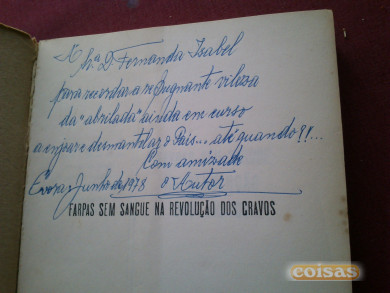 À Srª. D. Fernanda Isabel
para recordar a repugnante vileza
da "abrilada" ainda em curso
a enjoar e desmantelar o País... até quando?!...
Com amizade
Évora, Junho de 1978 o Autor
FARPAS SEM SANGUE NA REVOLUÇÃO DOS CRAVOS
coisas